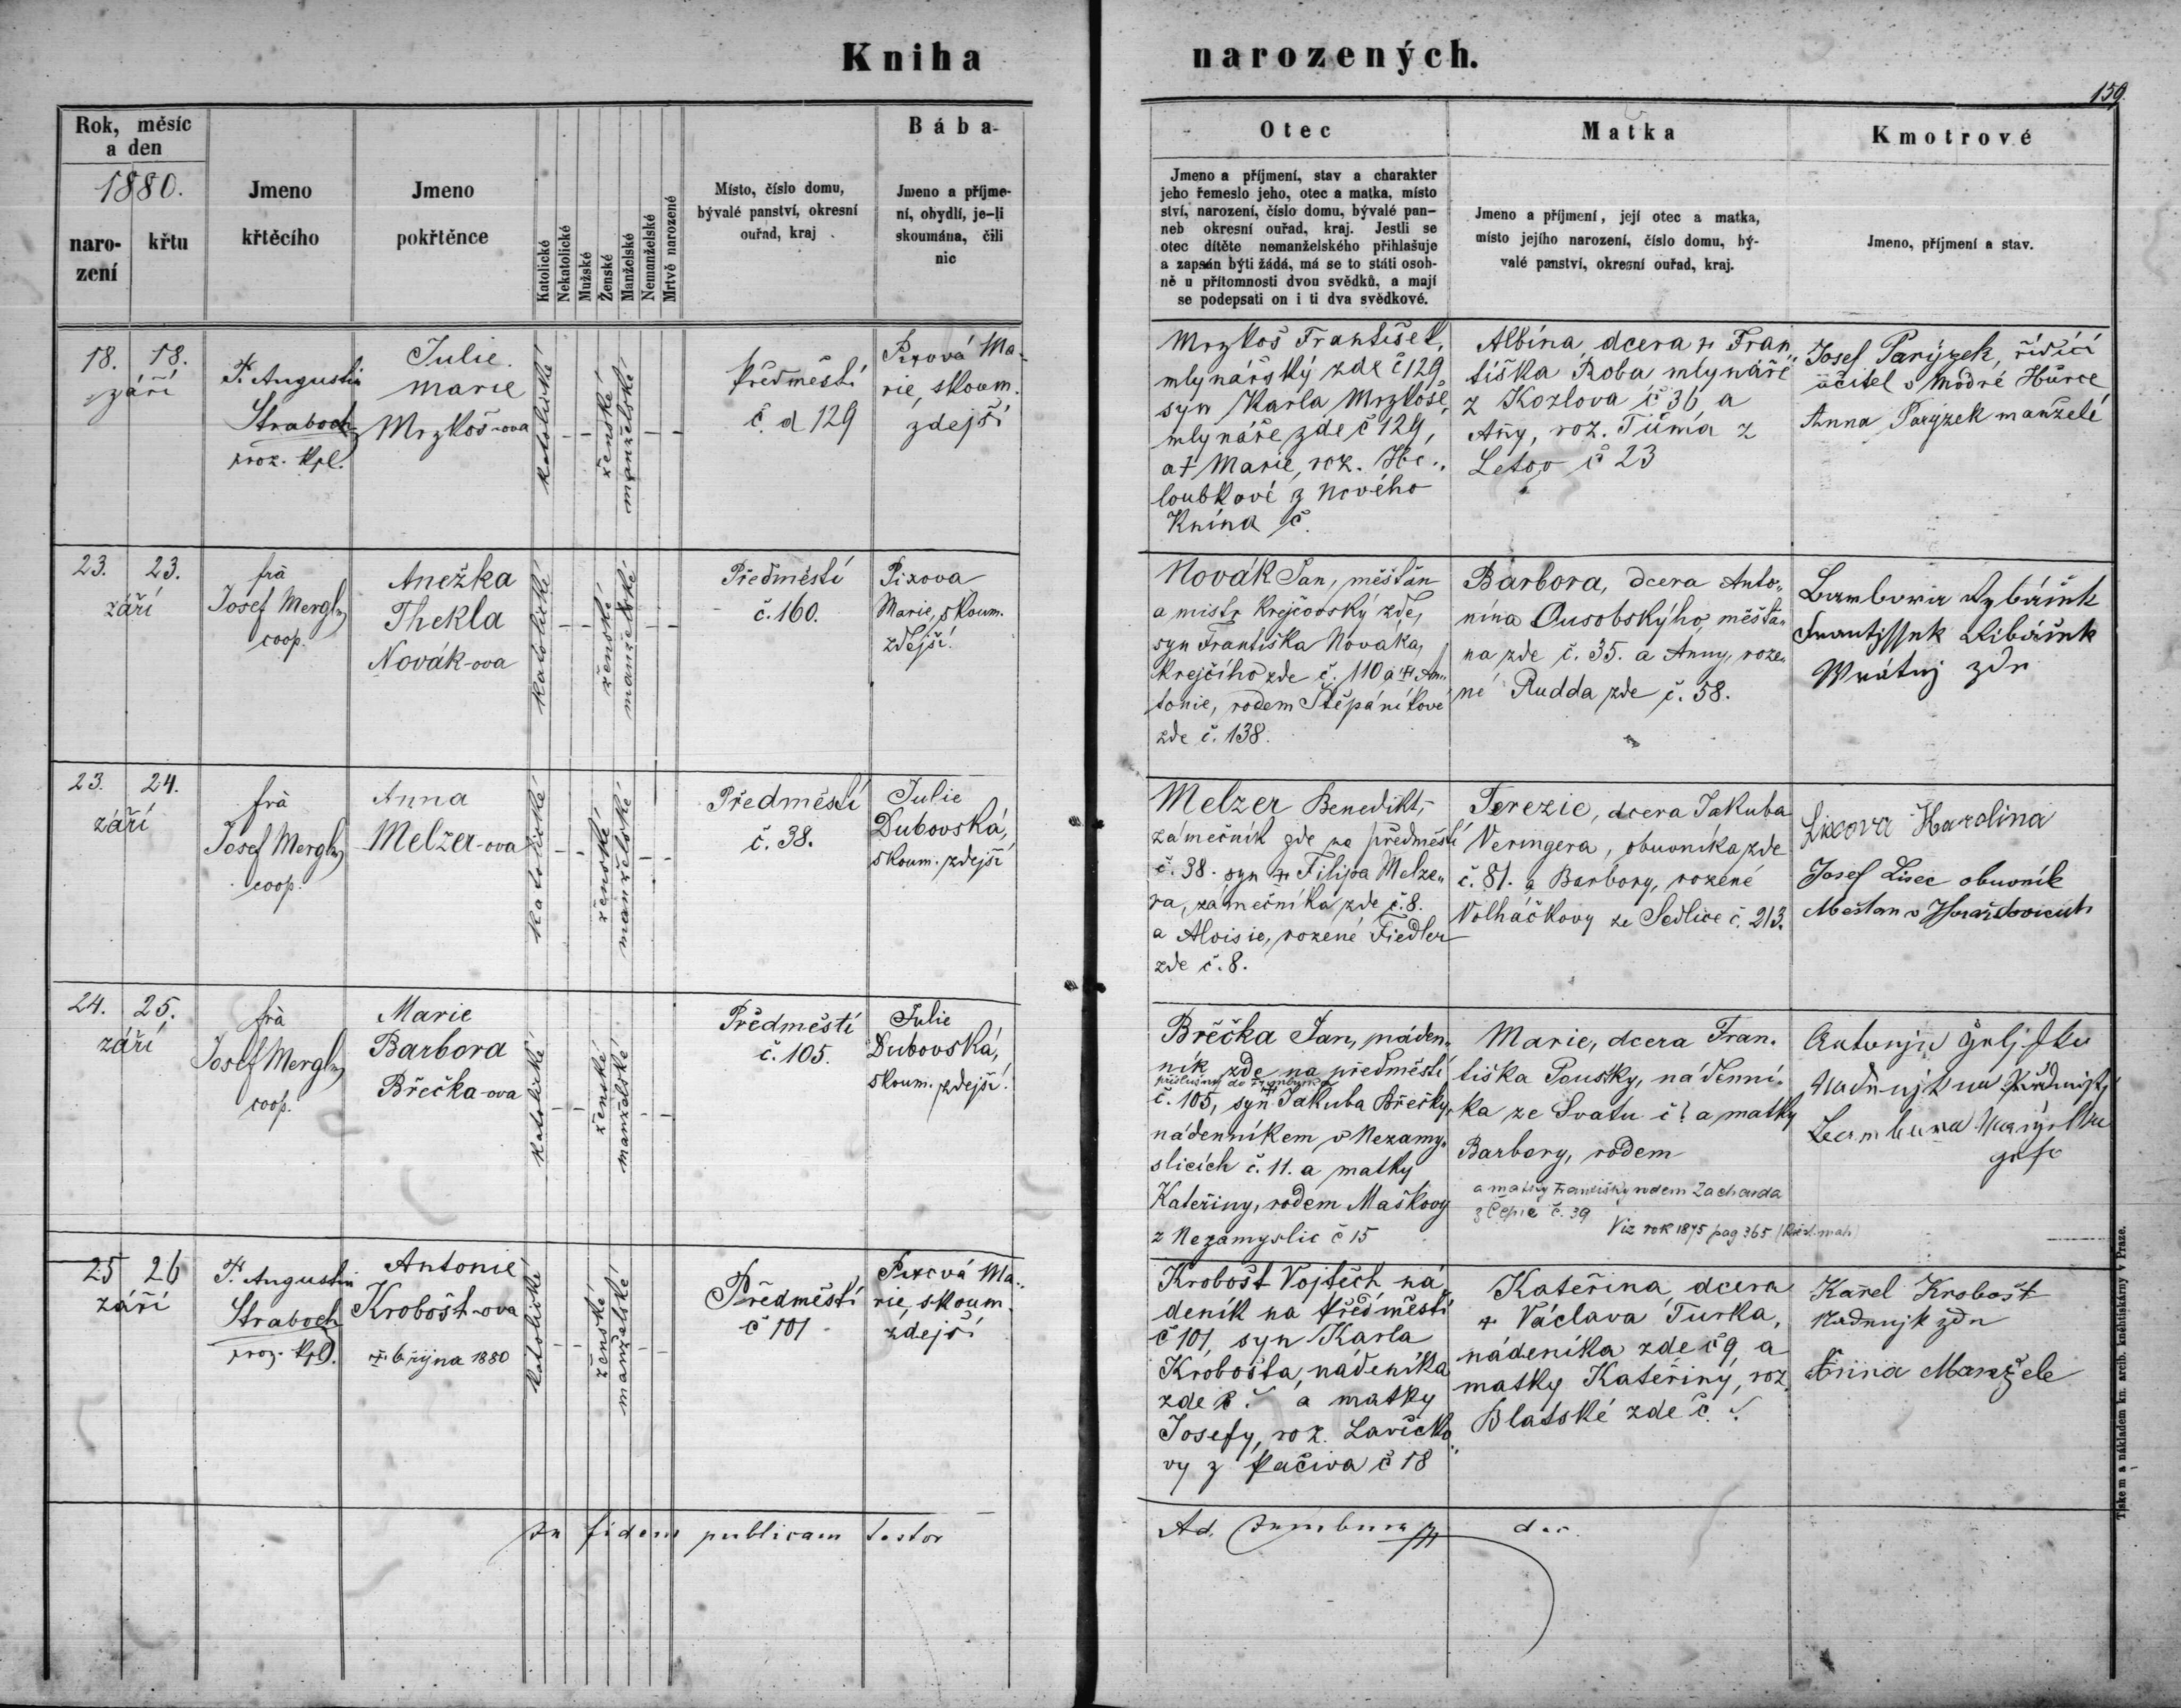 Kniha narozených.
159
Rok, měsíc
a den
1880.
naro-
zení
křtu
Jmeno
křtěcího
Jmeno
pokřtěnce
Katolické
Nekatolické
Mužské
Ženské
Manželské
Nemanželské
Mrtvě narozené
Místo, číslo domu,
bývalé panství, okresní
ouřad, kraj
Bába
Jmeno a příjme-
ní, obydlí, je-li
skoumána, čili
nic
Otec
Jmeno a příjmení, stav a charakter
jeho řemeslo jeho, otec a matka, místo
ství, narození, číslo domu, bývalé pan-
neb okresní ouřad, kraj. Jestli se
otec dítěte nemanželského přihlašuje
a zapsán býti žádá, má se to státi osob-
ně u přítomnosti dvou svědků, a mají
se podepsati on i ti dva svědkové.
Matka
Jmeno a příjmení, její otec a matka,
místo jejího narození, číslo domu, bý-
valé panství, okresní ouřad, kraj.
Kmotrové
Jmeno, příjmení a stav.
18. 18.
září
P. Augustin
Straboch
proz. kpl.
Julie
Marie
Mrzkoš-ova
katolické
ženské
manželské
Předměstí
č. d 129
Pixová Ma-
rie, skoum.
zdejší
Mrzkoš František,
mlynářský zde č 129
syn Karla Mrzkoše,
mlynáře zde č 129,
a † Marie, roz. Ho-
loubkové z Nového
Knína č.
Albína dcera † Fran
tiška Roba mlynáře
z Kozlova č 36 a
Anny, roz. Tůma z
Letov č 23
Josef Parýzek, řídící
učitel v Modré Hůrce
Anna Parýzek manželé
23. 23.
září
frà
Josef Mergl
coop.
Anežka
Thekla
Novák-ova
katolické
ženské
manželské
Předměstí
č. 160.
Pixova
Marie, skoum.
zdejší.
Novák Jan, měšťan
a mistr krejčovský zde,
syn Františka Nováka,
krejčího zde č. 110 a † An-
tonie, rodem Štěpáníkové
zde č. 138.
Barbora, dcera Anto-
nína Ousobskýho, měšťa-
na zde č. 35. a Anny, roze-
né Rudda zde č. 58.
23. 24.
září
frà
Josef Mergl
coop.
Anna
Melzer-ova
katolické
ženské
manželské
Předměstí
č. 38.
Julie
Dubovská,
skoum. zdejší
Melzer Benedikt,
zámečník zde na předměstí
č. 38. syn † Filipa Melze-
ra, zámečníka zde č. 8.
a Aloisie, rozené Fiedler
zde č. 8.
Terezie, dcera Jakuba
Veringera, obuvníka zde
č. 81. a Barbory, rozené
Volháčkovy ze Sedlice č. 213.
Lixova Karolina
Josef Lisec obuvník
Mešťan v Horažďovicích
24. 25.
září
frà
Josef Mergl
coop.
Marie
Barbora
Břečka-ova
katolické
ženské
manželské
Předměstí
č. 105.
Julie
Dubovská,
skoum. zdejší.
Břečka Jan, náden-
ník zde na předměstí
č. 105, syn Jakuba Břečky,
nádenníkem v Nezamy-
slicích č. 11. a matky
Kateřiny, rodem Maškovy
z Nezamyslic č 15
Marie, dcera Fran-
tiška Pousky, nádenní-
ka ze Svatu č? a matky
Barbory, rodem
a matky Františky rodem Zacharda
z Čepic č. 39
Viz rok 1875 pag 365
25 26
září
P. Augustin
Straboch
proz. kpl.
Antonie
Krobošt-ova
† 6 října 1880
katolické
ženské
manželské
Předměstí
č 101
Pixová Ma-
rie, skoum.
zdejší
Krobošt Vojtěch ná-
deník na předměstí
č 101, syn Karla
Krobošta, nádeníka
zde č. a matky
Josefy, roz. Lavičko-
vy z Pačiva č 18
Kateřina, dcera
† Václava Turka,
nádeníka zde č 9 a
matky Kateřiny, roz.
Blatské zde č.
Karel Krobošt
Anna Manžele
In fidem publicam testor
Tiskem a nákladem kn. arcib. knihtiskárny v Praze.